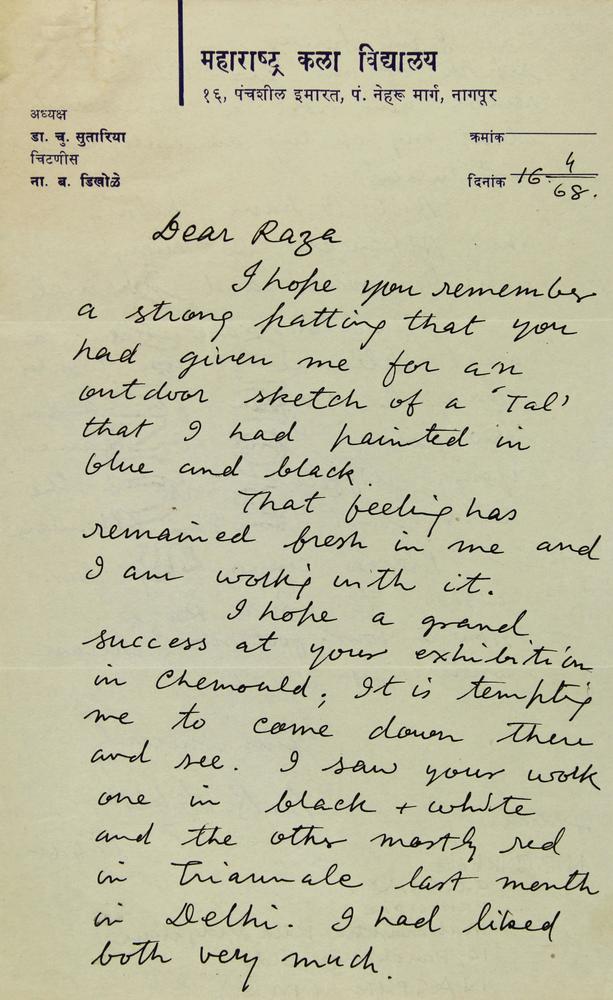 महाराष्ट्र कला विद्यालय
१६, पंचशील इमारत, पं. नेहरू मार्ग, नागपूर
अध्यक्ष
डा. चु. सुतारिया
चिटणीस
ना. ब. डिखोळे
क्रमांक
दिनांक 16.4/68.
Dear Raza
I hope you remember
a strong patting that you
had given me for an
outdoor sketch of a 'Tal'
that I had painted in
blue and black.
That feeling has
remained fresh in me and
I am working with it.
I hope a grand
success at your exhibition
in Chemould; It is tempting
me to come down there
and see. I saw your work
one in black + white
and the other mostly red
in Triannale last month
in Delhi. I had liked
both very much.